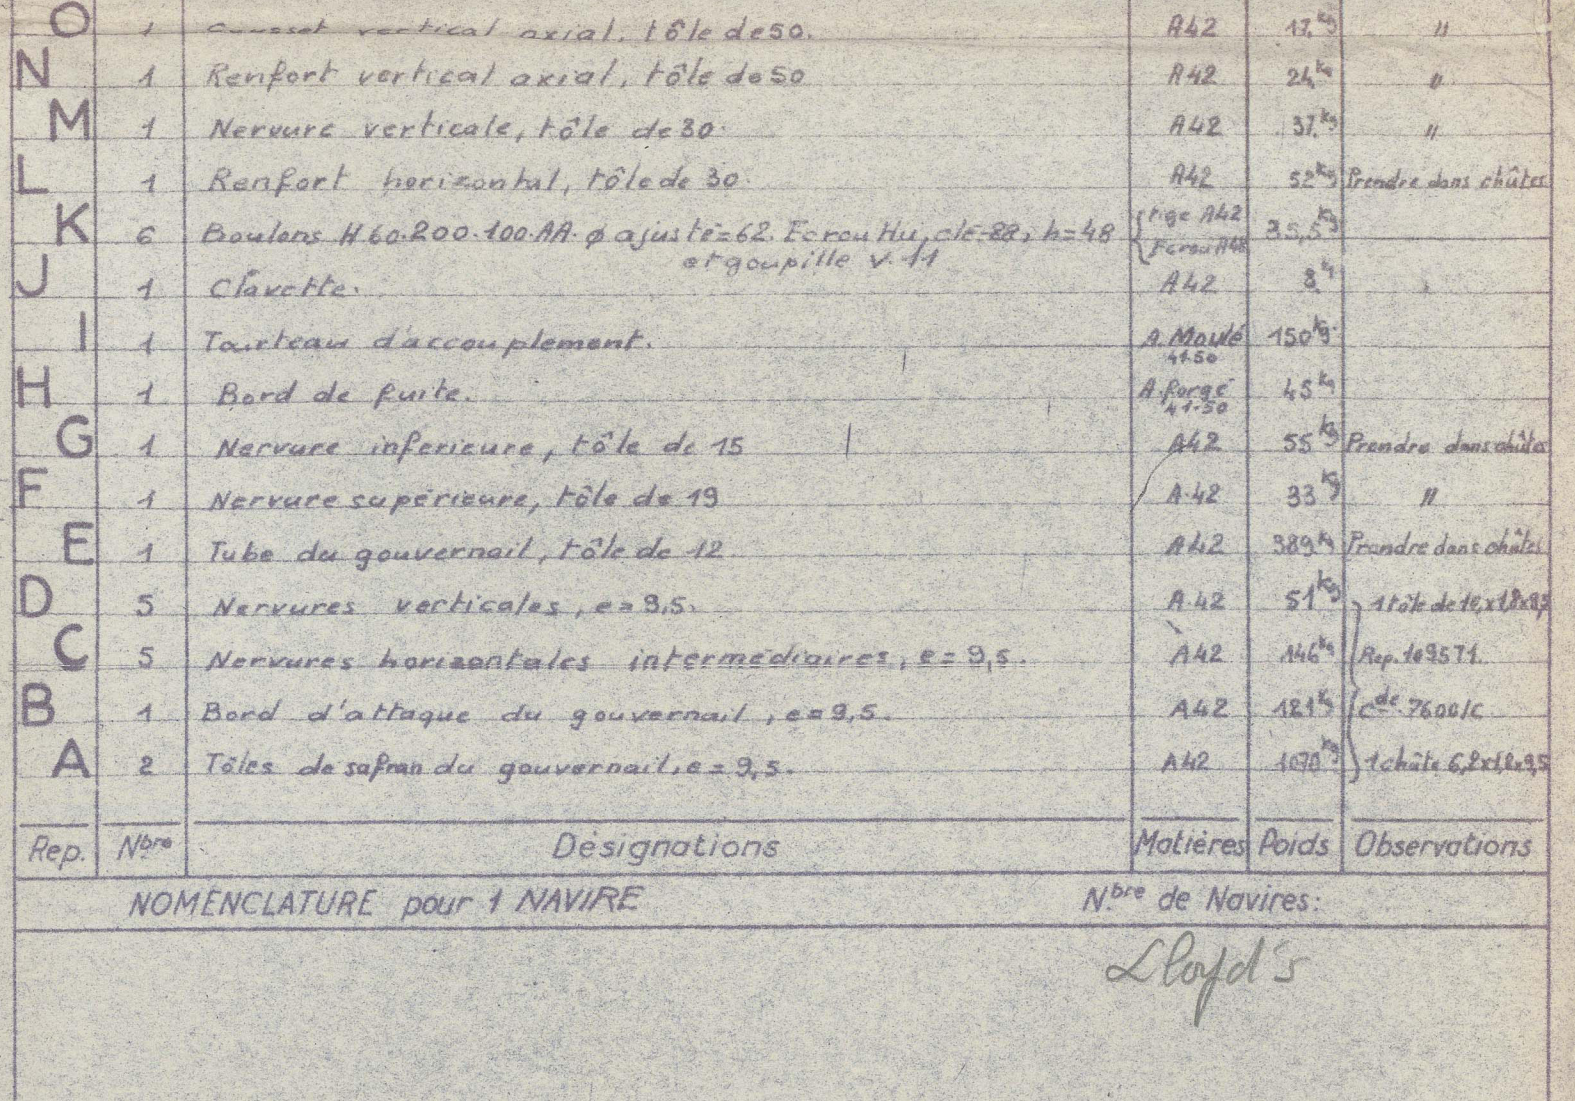 O 1 Gousset vertical axial, tôle de 50. A42 17.kg "
N 1 Renfort vertical axial, tôle de 50 A42 24kg "
M 1 Nervure verticale, tôle de 30. A42 37.kg "
L 1 Renfort horizontal, tôle de 30. A42 52kg Prendre dans chûtes
K 6 Boulons H 60.200.100.AA. ø ajusté=62. Ecrou Hu, clé=88, h=48 { tige A42 35,5kg
et goupille v. 11 Ecrou A42
J 1 Clavette. A42 8.kg
I 1 Tourteau d'accouplement. A. Moulé 150kg
41.50
H 1 Bord de fuite. A. forgé 45kg
41-50
G 1 Nervure inferieure, tôle de 15 A42 55kg Prendre dans chûtes
F 1 Nervure supérieure, tôle de 19 A.42 33kg "
E 1 Tube du gouvernail, tôle de 12 A42 389kg Prendre dans chûtes
D 5 Nervures verticales, e=9,5. A.42 51kg 1 tôle de
C 5 Nervures horizontales intermédiaires, e=9,5. A42 146kg Rep. 109571.
B 1 Bord d'attaque du gouvernail, e=9,5. A42 121kg cde 7600/C
A 2 Tôles de safran du gouvernail, e=9,5. A42 1070kg 1 chûte 6,2x1,8x9,5
Rep. Nbre Désignations Matières Poids Observations
NOMENCLATURE pour 1 NAVIRE N.bre de Navires:
Lloyd's